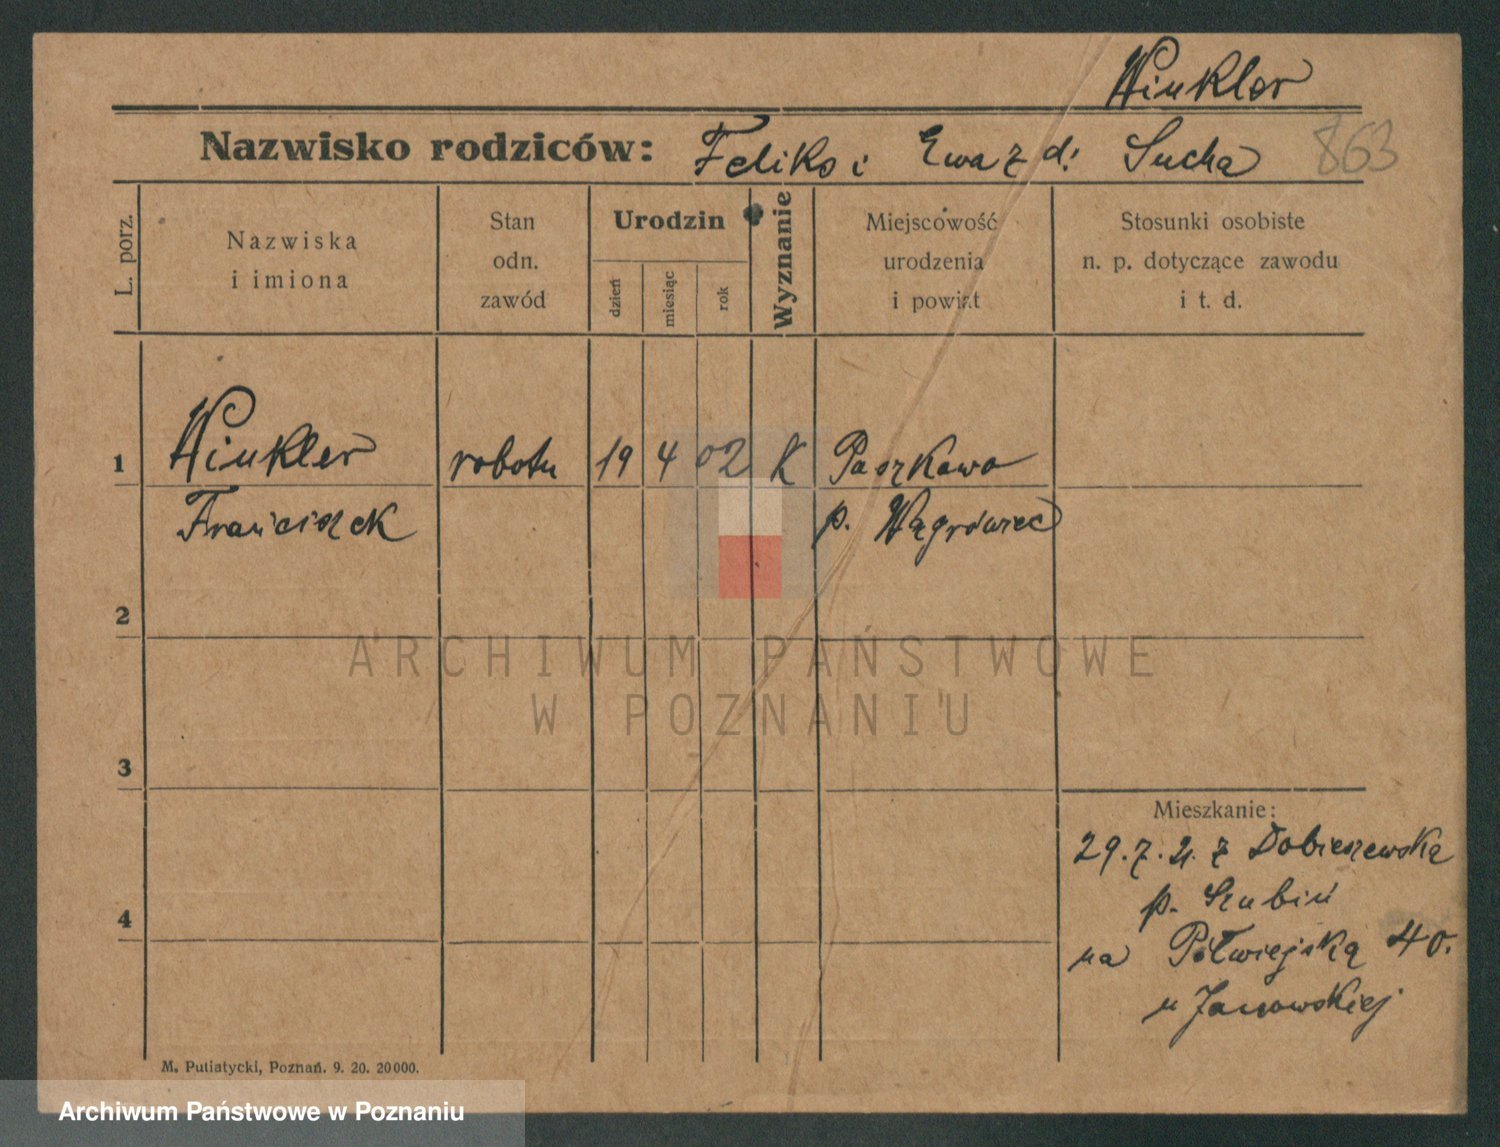 Winkler
Nazwisko rodziców: Feliks i Ewa z d. Sucha 863
L. porz.
Nazwiska
i imiona
Stan
odn.
zawód
Urodzin
dzień
miesiąc
rok
Wyznanie
Miejscowość
urodzenia
i powiat
Stosunki osobiste
n. p. dotyczące zawodu
i t. d.
1 Winkler robotn 19 4 02 K Paszkowo
Franciszek p. Wągrówiec
2
3
Mieszkanie:
29.7.21. z Dobieszewska
p. Szubin
4
na Półwiejską 40.
u Janowskiej
M. Putiatycki, Poznań. 9. 20. 20000.
ARCHIWUM PAŃSTWOWE
W POZNANIU
Archiwum Państwowe w Poznaniu